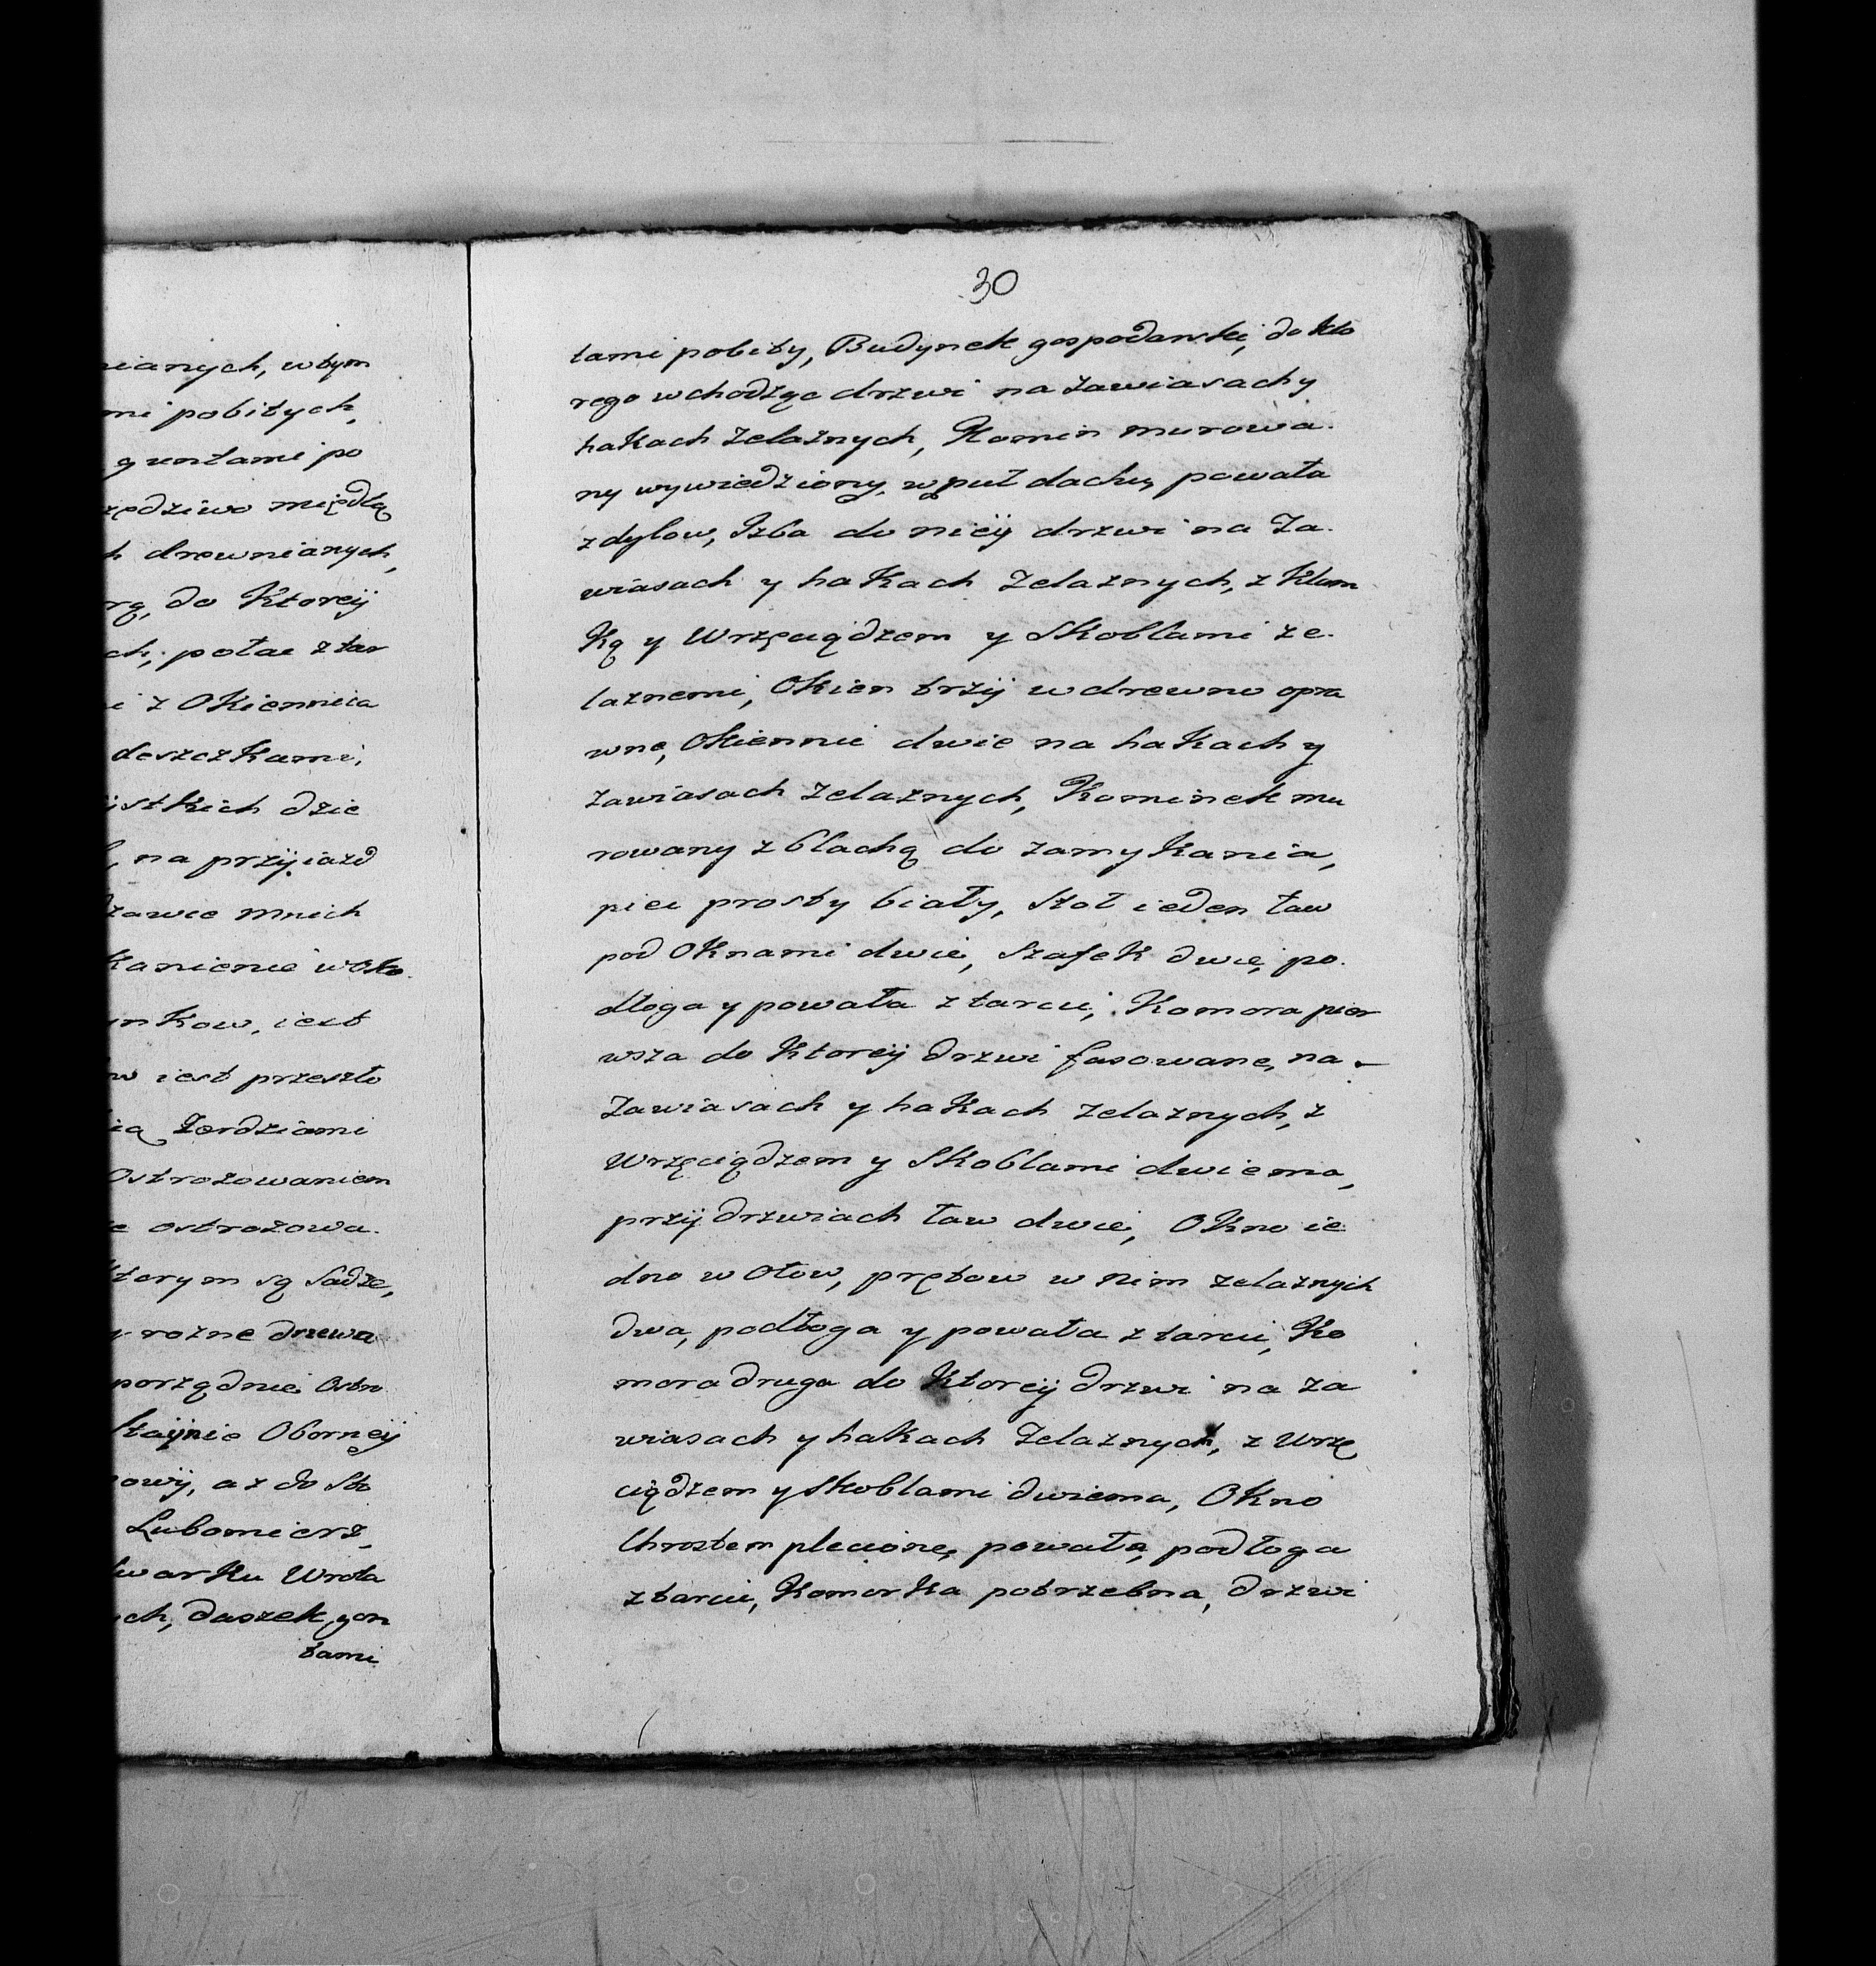 nianych, w tym
mi pobitych,
guntami po
rzędziwo międlą
h drewnianych,
rą, do Ktoreÿ
ch, połac z tar
i z OKiennica
deszczKami,
ÿstKich dzie
na przÿiazd
dzawie mnich
Kanienie woko
ynKow, iest
w iest przeszło
ią Zerdziami
Ostrozowaniem
e ostrozowa.
Ktorym są Sadze,
y rozne drzewa
porządnie Ostro
Staynie Oborneÿ
nowÿ, az do Sto
Lubomierz_
lwarKu Wrota
ych, daszek gon
tami
30
tami pobity, Budynek gospodarski, do kto
rego wchodząc drzwi na zawiasach y
haKach Zelaznych, Komin murowa.
ny wywiedziony, w puł dachu, powała
z dylow, Izba do nieÿ drzwi na Za.
wiasach y haKach Zelaznych, z Klam
Ką y Wrzęciądzem y SKoblami ze.
laznemi, OKien trzÿ w drewno opra
wne, OKiennic dwie na haKach y
zawiasach Zelaznych, Kominek mu
rowany z blachą do zamyKania,
piec prosty biały, Stoł ieden ław
pod OKnami dwie, SzafeK dwie, po.
dłoga y powała z tarcic, Komora pier
wsza do Ktoreÿ drzwi fasowane, na
Zawiasach y haKach zelaznych, z
Wrzęciądzem y SKoblami dwiema,
przÿ drzwiach ław dwie, OKno ie
dno w Ołow, prętow w nim zelaznych
dwa, podłoga y powała z tarcic, Ko
mora druga do Ktoreÿ drzwi na za
wiasach y haKach Zelaznych, z Wrzę
ciądzem y Skoblami dwiema, OKno
Chrostem plecione, powała, podłoga
z tarcic, KomorKa potrzebna, drzwi